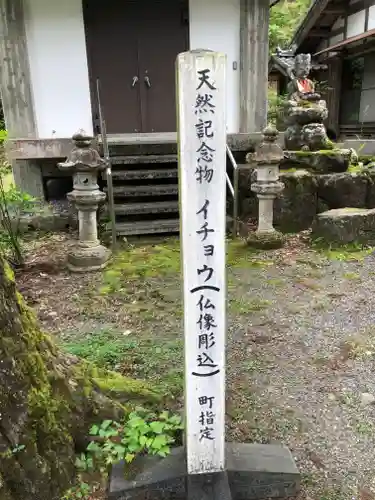 天然記念物 イチョウ(仏像彫込) 町指定